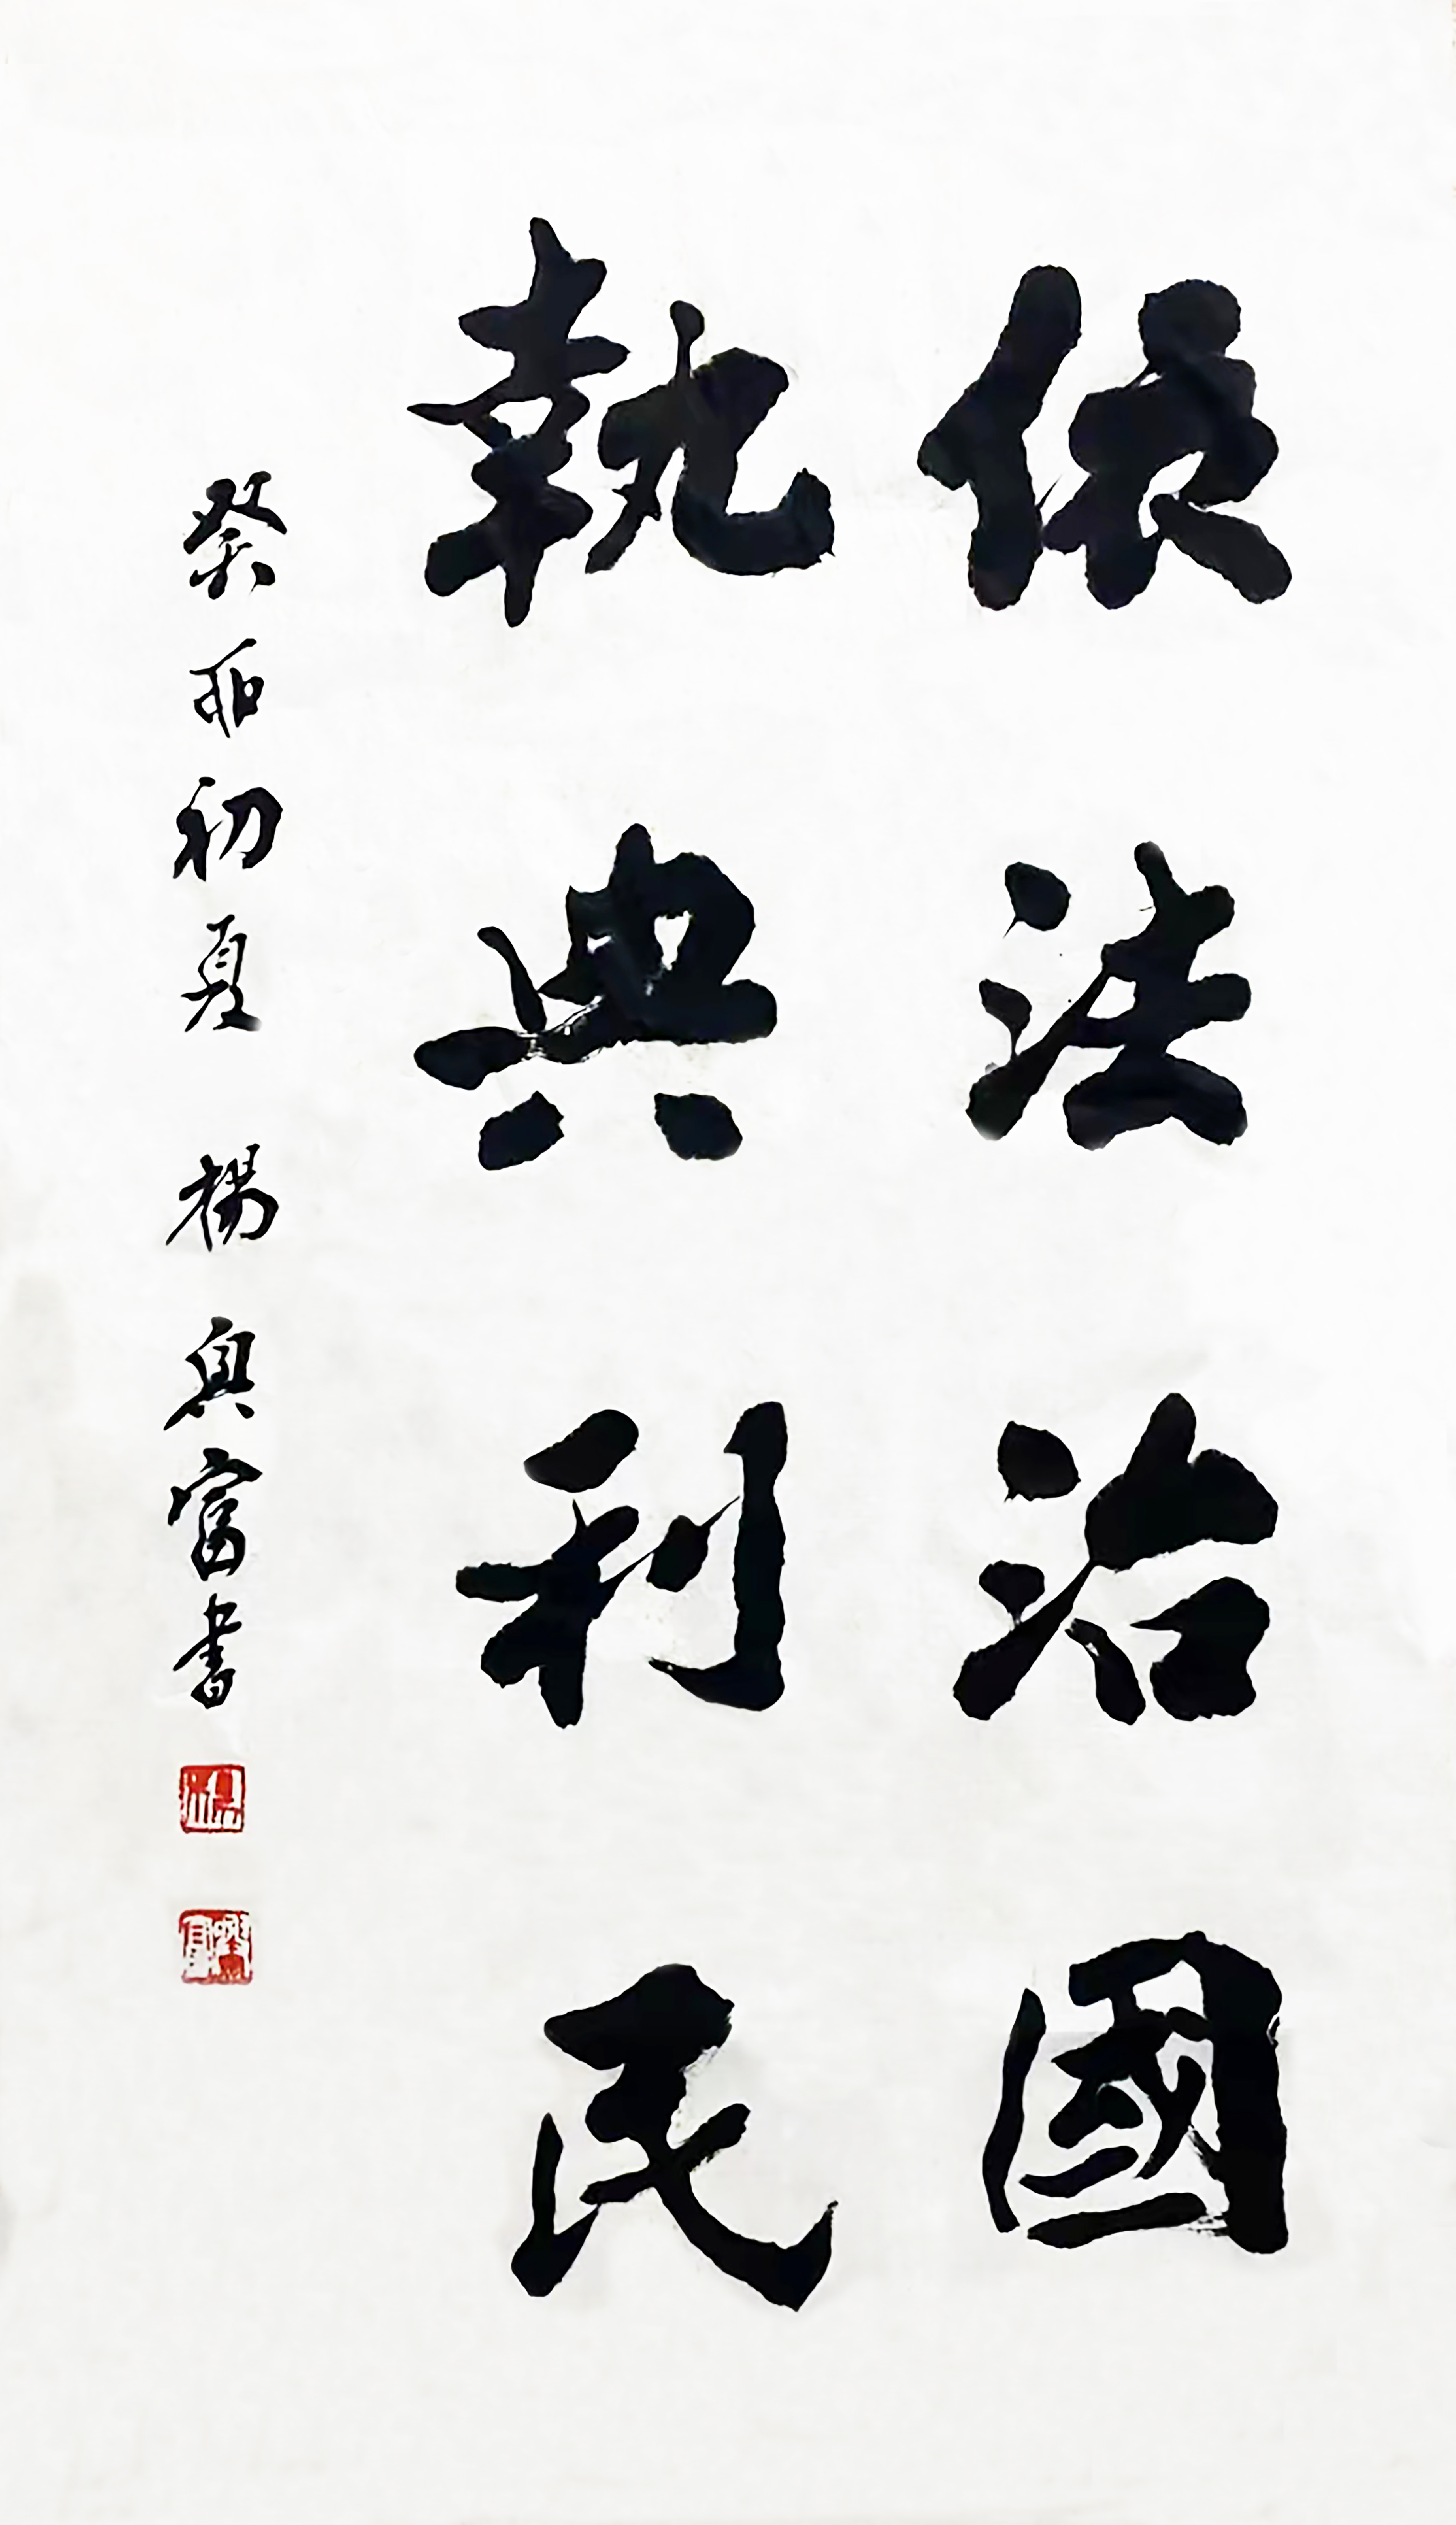 依法治國
執典利民
癸卯初夏 楊興富書